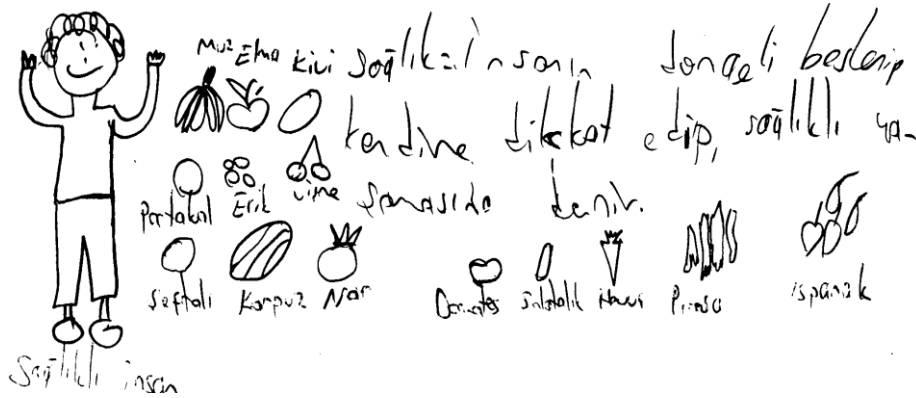 Muz Elma Kivi
Sağlık: İnsanın dengeli beslenip
kendine dikkat edip, sağlıklı ya-
şamasıda denir.
Portakal Erik Vişne
Şeftali Karpuz Nar
Domates Salatalık Havuç Pırasa ıspanak
Sağlıklı insan